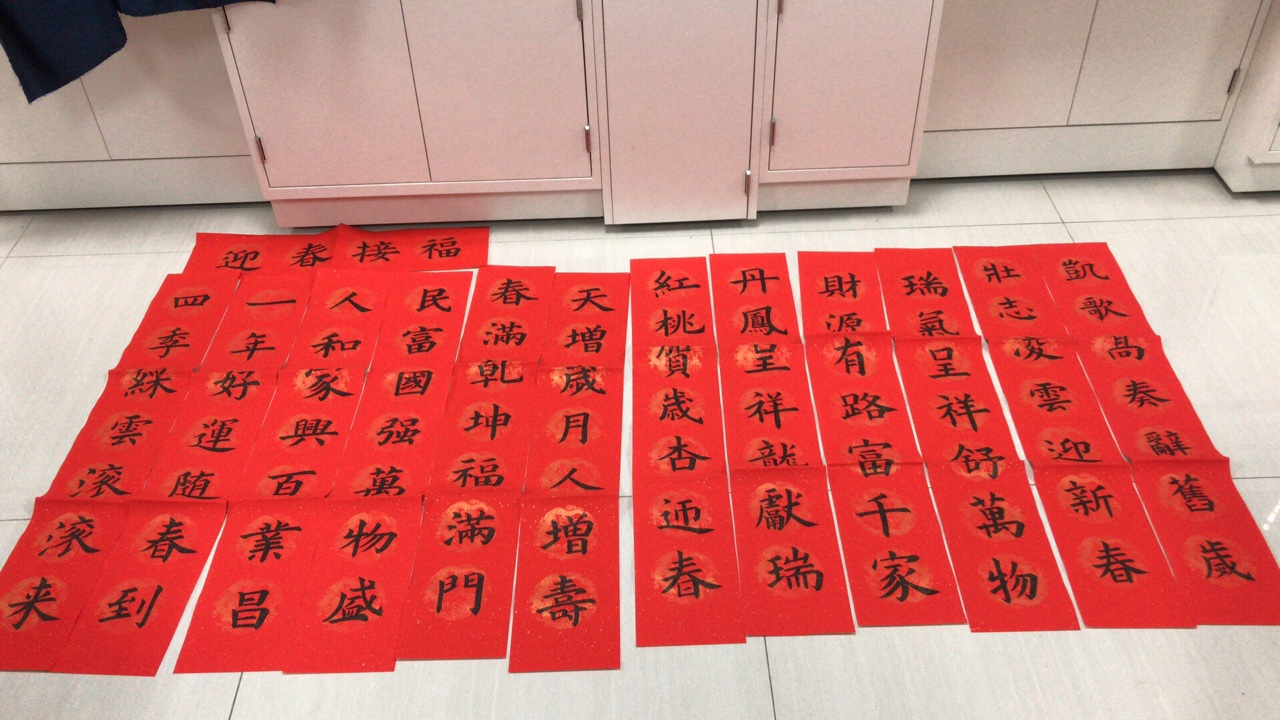 迎春接福
凱歌高奏辭舊歲
壯志凌雲迎新春
瑞氣呈祥舒萬物
財源有路富千家
丹鳳呈祥龍獻瑞
紅桃賀歲杏迎春
天增歲月人增壽
春滿乾坤福滿門
民富國强萬物盛
人和家興百業昌
一年好運随春到
四季綵雲滚滚来